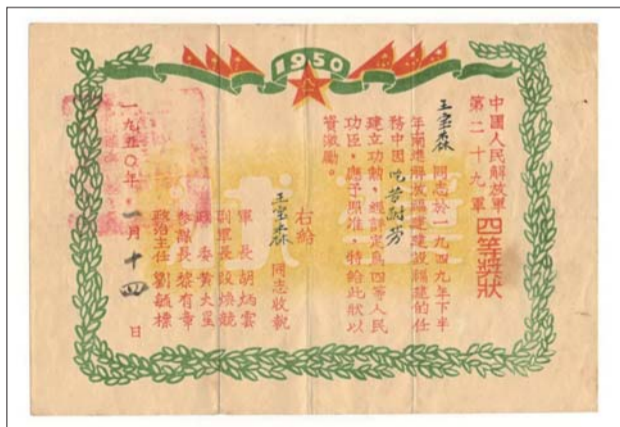 1950
八一
中國人民解放軍
第二十九軍
四等獎狀
王宝森 同志於一九四九年下半
年南進解放福建建設福建的任
務中因吃苦耐劳
建立功勣，經評定爲四等人民
功臣，應予照准，特給此狀以
資激勵。
右給
王宝森 同志收執
軍長 胡炳雲
副軍長 段煥競
政委 黃火星
參謀長 黎有章
政治主任 劉毓標
一九五〇年一月十四日